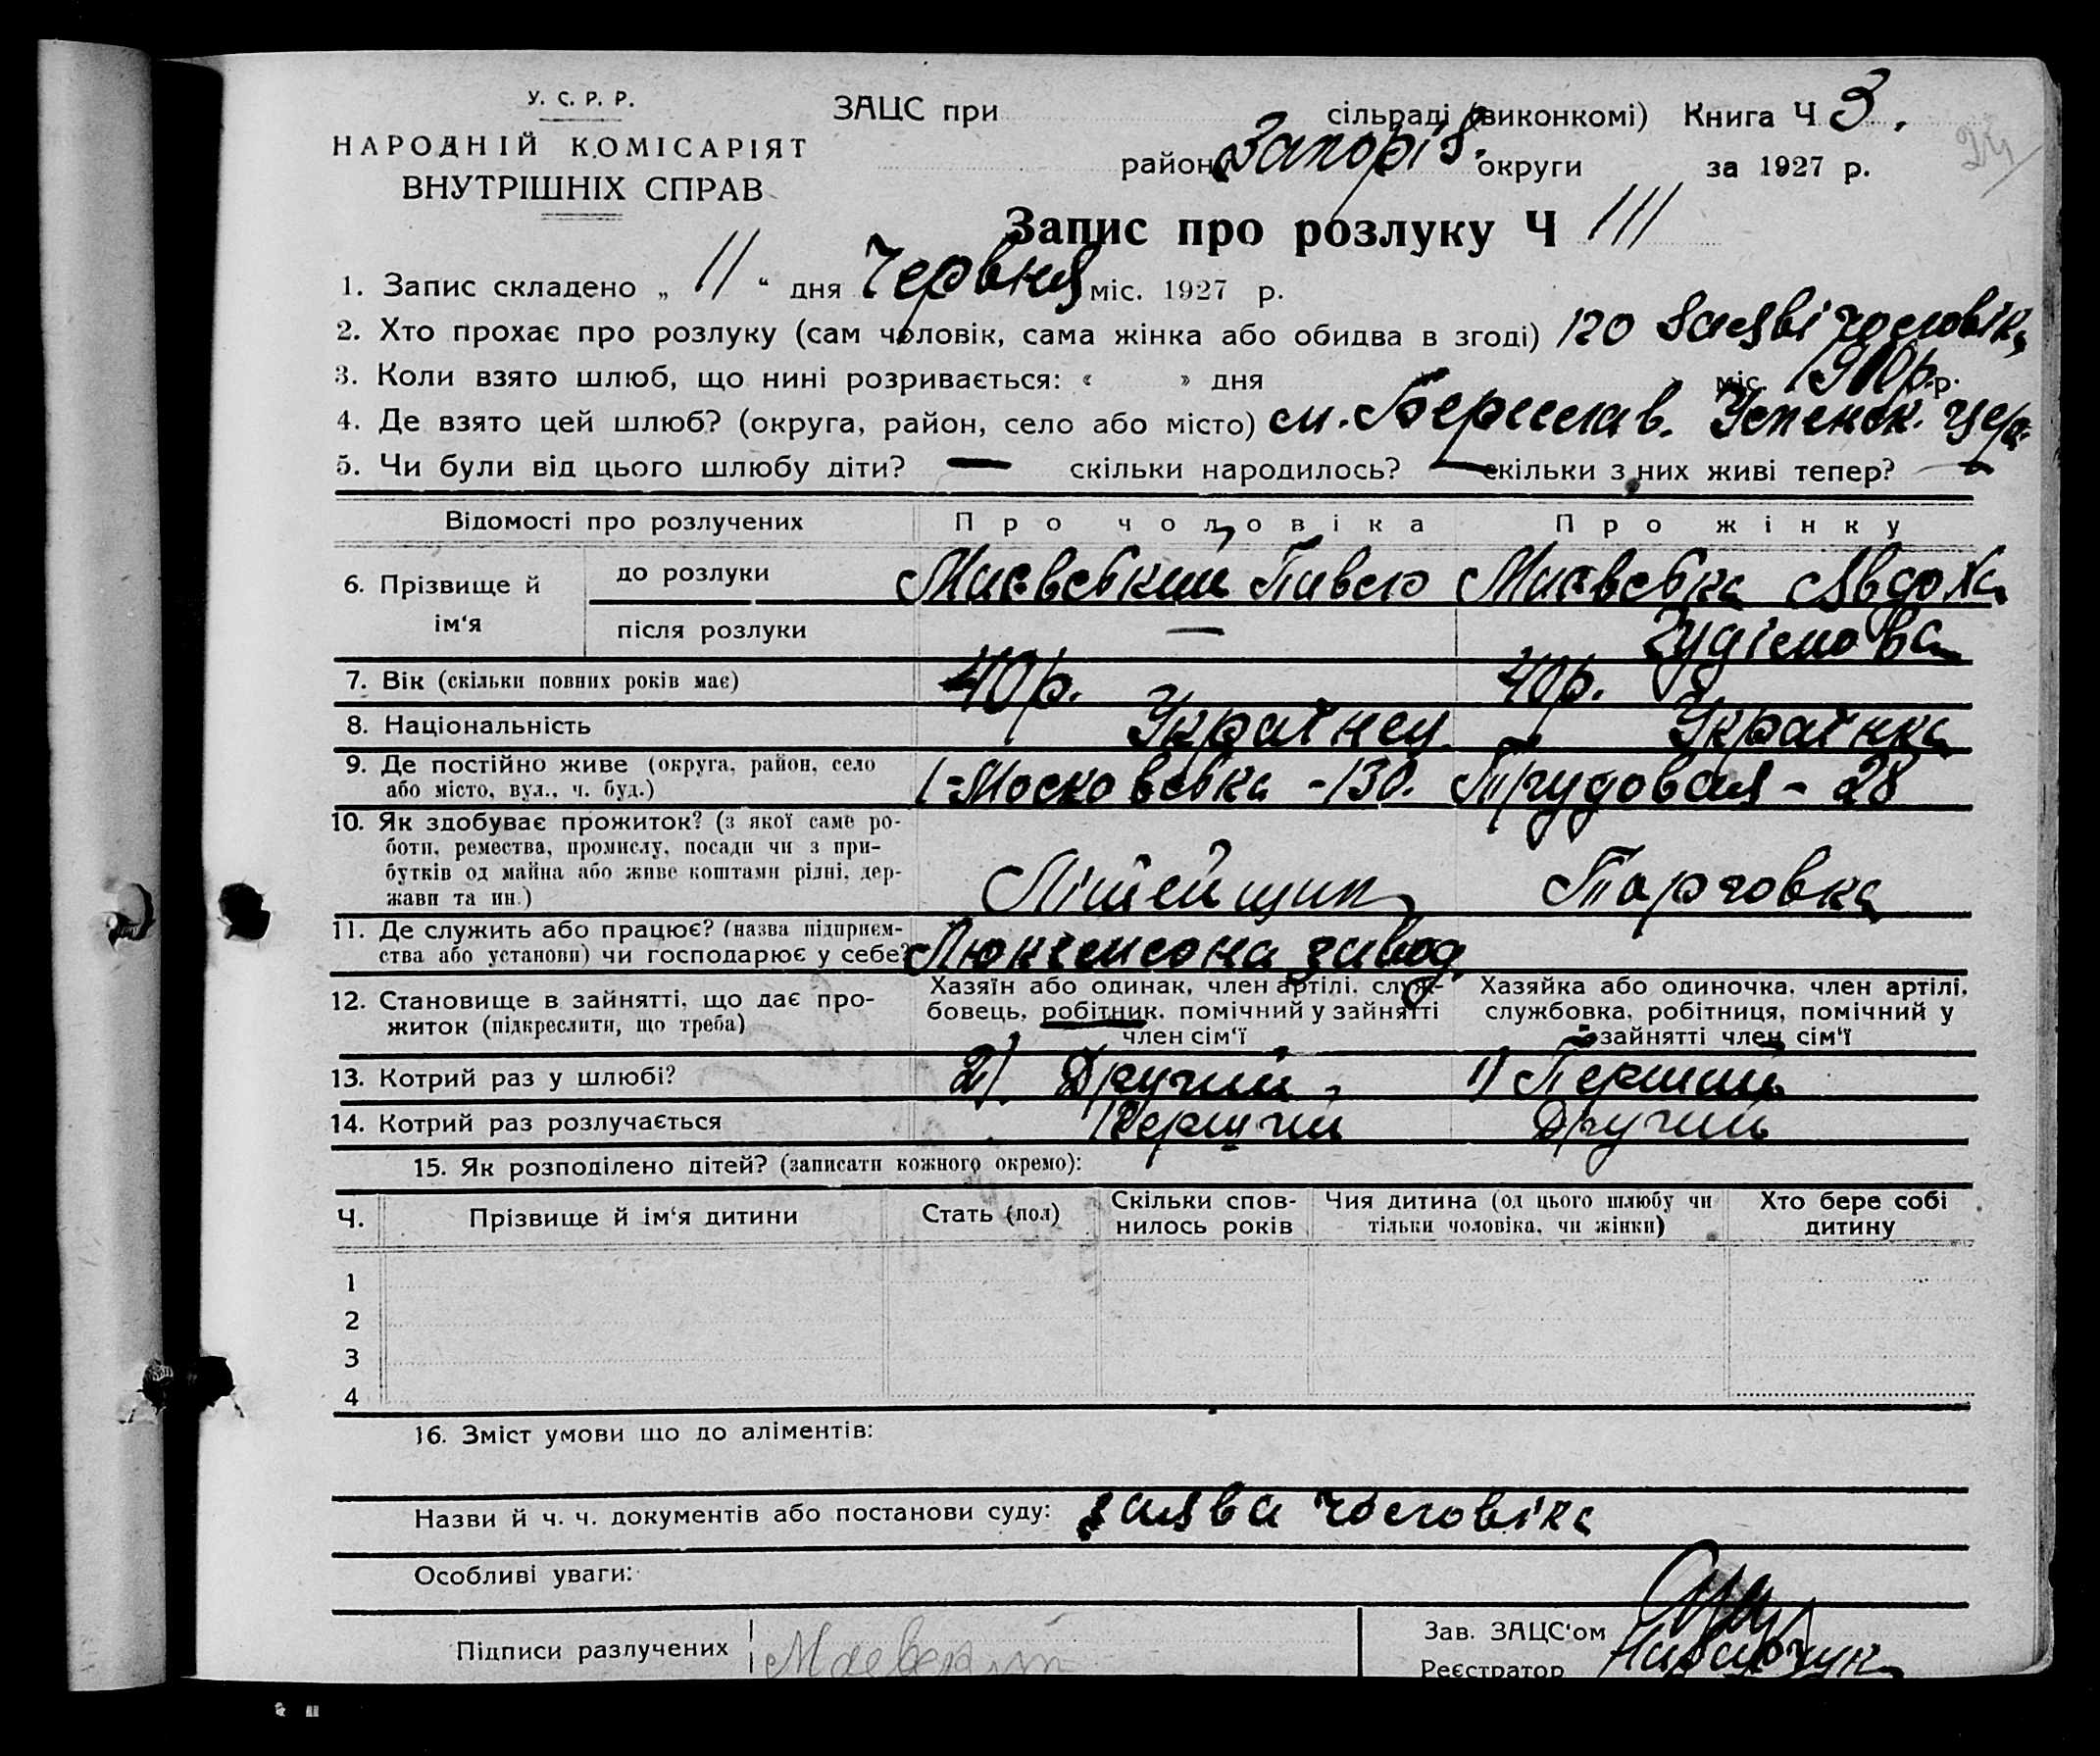 У. С. Р. Р.
НАРОДНІЙ КОМІСАРІЯТ
ВНУТРІШНІХ СПРАВ
ЗАЦС при сільраді (виконкомі) Книга Ч 3.
району Запоріз. округи за 1927 р.
Запис про розлуку Ч 111
1. Запис складено „ 11 “ дня Червня міс. 1927 р.
2. Хто прохає про розлуку (сам чоловік, сама жінка або обидва в згоді) по заяві чоловіка
3. Коли взято шлюб, що нині розривається: « » дня міс. 1910р. р.
4. Де взято цей шлюб? (округа, район, село або місто) м. Берислав. Успенск. церк.
5. Чи були від цього шлюбу діти? — скільки народилось? — скільки з них живі тепер? —
Відомості про розлучених Про чоловіка Про жінку
6. Прізвище й ім‘я
до розлуки Маєвський Павло Маєвська Явдоха
після розлуки —
7. Вік (скільки повних років має) 40р. 40р.
8. Національність Українец Українка
9. Де постійно живе (округа, район, село або місто, вул., ч. буд.) Московська - 130. Трудовая - 28
10. Як здобуває прожиток? (з якої саме роботи, ремества, промислу, посади чи з прибутків од майна або живе коштами рідні, держави та ин.) Літейщик Торговка
11. Де служить або працює? (назва підприємства або установи) чи господарює у себе? завод
12. Становище в зайнятті, що дає прожиток (підкреслити, що треба)
Хазяїн або одинак, член артілі, службовець, робітник, помічний у зайнятті член сім‘ї
Хазяйка або одиночка, член артілі, службовка, робітниця, помічний у зайнятті член сім‘ї
13. Котрий раз у шлюбі? 2) Другий 1) Перший
14. Котрий раз розлучається Перший Другий
15. Як розподілено дітей? (записати кожного окремо):
Ч. Прізвище й ім‘я дитини Стать (пол) Скільки сповнилось років Чия дитина (од цього шлюбу чи тільки чоловіка, чи жінки) Хто бере собі дитину
1
2
3
4
16. Зміст умови що до аліментів:
Назви й ч. ч. документів або постанови суду: заява чоловіка
Особливі уваги:
Підписи разлучених Маевский
Зав. ЗАЦС‘ом
Реєстратор